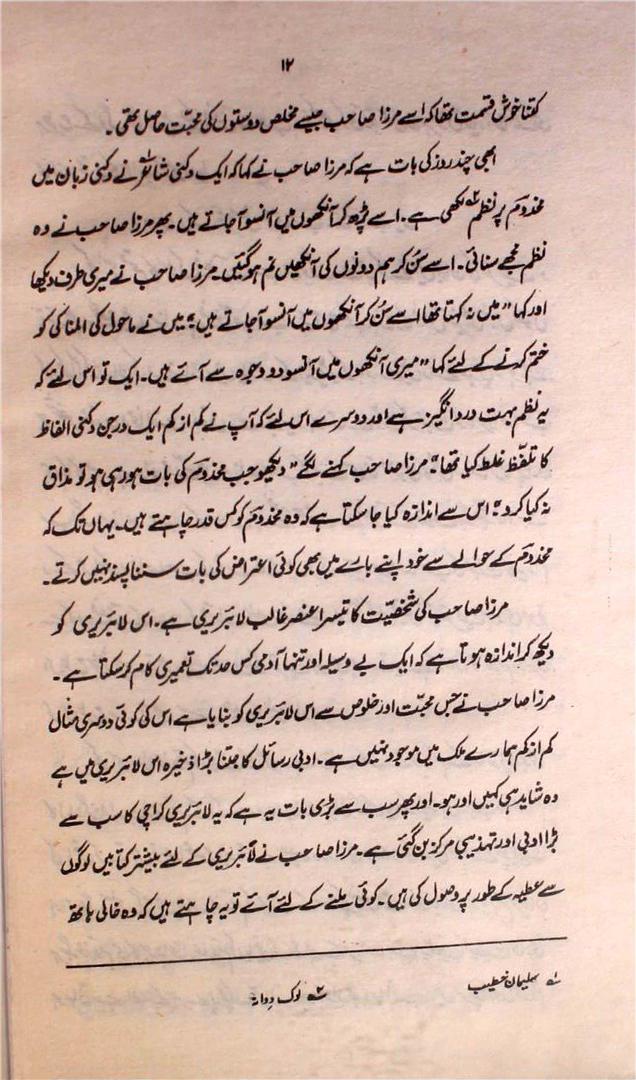 ۱۲
کتنا خوش قسمت تھا کہ اسے مرزا صاحب جیسے مخلص دوستوں کی محبّت حاصل تھی۔
ابھی چند روز کی بات ہے کہ مرزا صاحب نے کہا کہ ایک دکنی شاعر۱ نے دکنی زبان میں
مخدوم پر نظم۲ لکھی ہے۔ اسے پڑھ کر آنکھوں میں آنسو آجاتے ہیں۔ پھر مرزا صاحب نے وہ
نظم مجھے سنائی۔ اسے سُن کر ہم دونوں کی آنکھیں نم ہوگئیں۔ مرزا صاحب نے میری طرف دیکھا
اور کہا ”میں نہ کہتا تھا اسے سُن کر آنکھوں میں آنسو آجاتے ہیں“ میں نے ماحول کی المناکی کو
ختم کرنے کے لئے کہا ”میری آنکھوں میں آنسو دو وجوہ سے آئے ہیں۔ ایک تو اس لئے کہ
یہ نظم بہت درد انگیز ہے اور دوسرے اس لئے کہ آپ نے کم از کم ایک درجن دکنی الفاظ
کا تلفّظ غلط کیا تھا“ مرزا صاحب کہنے لگے ”دیکھو جب مخدوم کی بات ہو رہی ہو تو مذاق
نہ کیا کرو“ اس سے اندازہ کیا جا سکتا ہے کہ وہ مخدوم کو کس قدر چاہتے ہیں۔ یہاں تک کہ
مخدوم کے حوالے سے خود اپنے بارے میں بھی کوئی اعتراض کی بات سننا پسند نہیں کرتے۔
مرزا صاحب کی شخصیّت کا تیسرا عنصر غالب لائبریری ہے۔ اس لائبریری کو
دیکھ کر اندازہ ہوتا ہے کہ ایک بے وسیلہ اور تنہا آدمی کس حد تک تعمیری کام کر سکتا ہے۔
مرزا صاحب نے جس محبّت اور خلوص سے اس لائبریری کو بنایا ہے اس کی کوئی دوسری مثال
کم از کم ہمارے ملک میں موجود نہیں ہے۔ ادبی رسائل کا جتنا بڑا ذخیرہ اس لائبریری میں ہے
وہ شاید ہی کہیں اور ہو۔ اور پھر سب سے بڑی بات یہ ہے کہ یہ لائبریری کراچی کا سب سے
بڑا ادبی اور تہذیبی مرکز بن گئی ہے۔ مرزا صاحب نے لائبریری کے لئے بیشتر کتابیں لوگوں
سے عطیہ کے طور پر وصول کی ہیں۔ کوئی ملنے کے لئے آئے تو یہ چاہتے ہیں کہ وہ خالی ہاتھ
۱ سلیمان خطیب ۲ لوک دوانہ